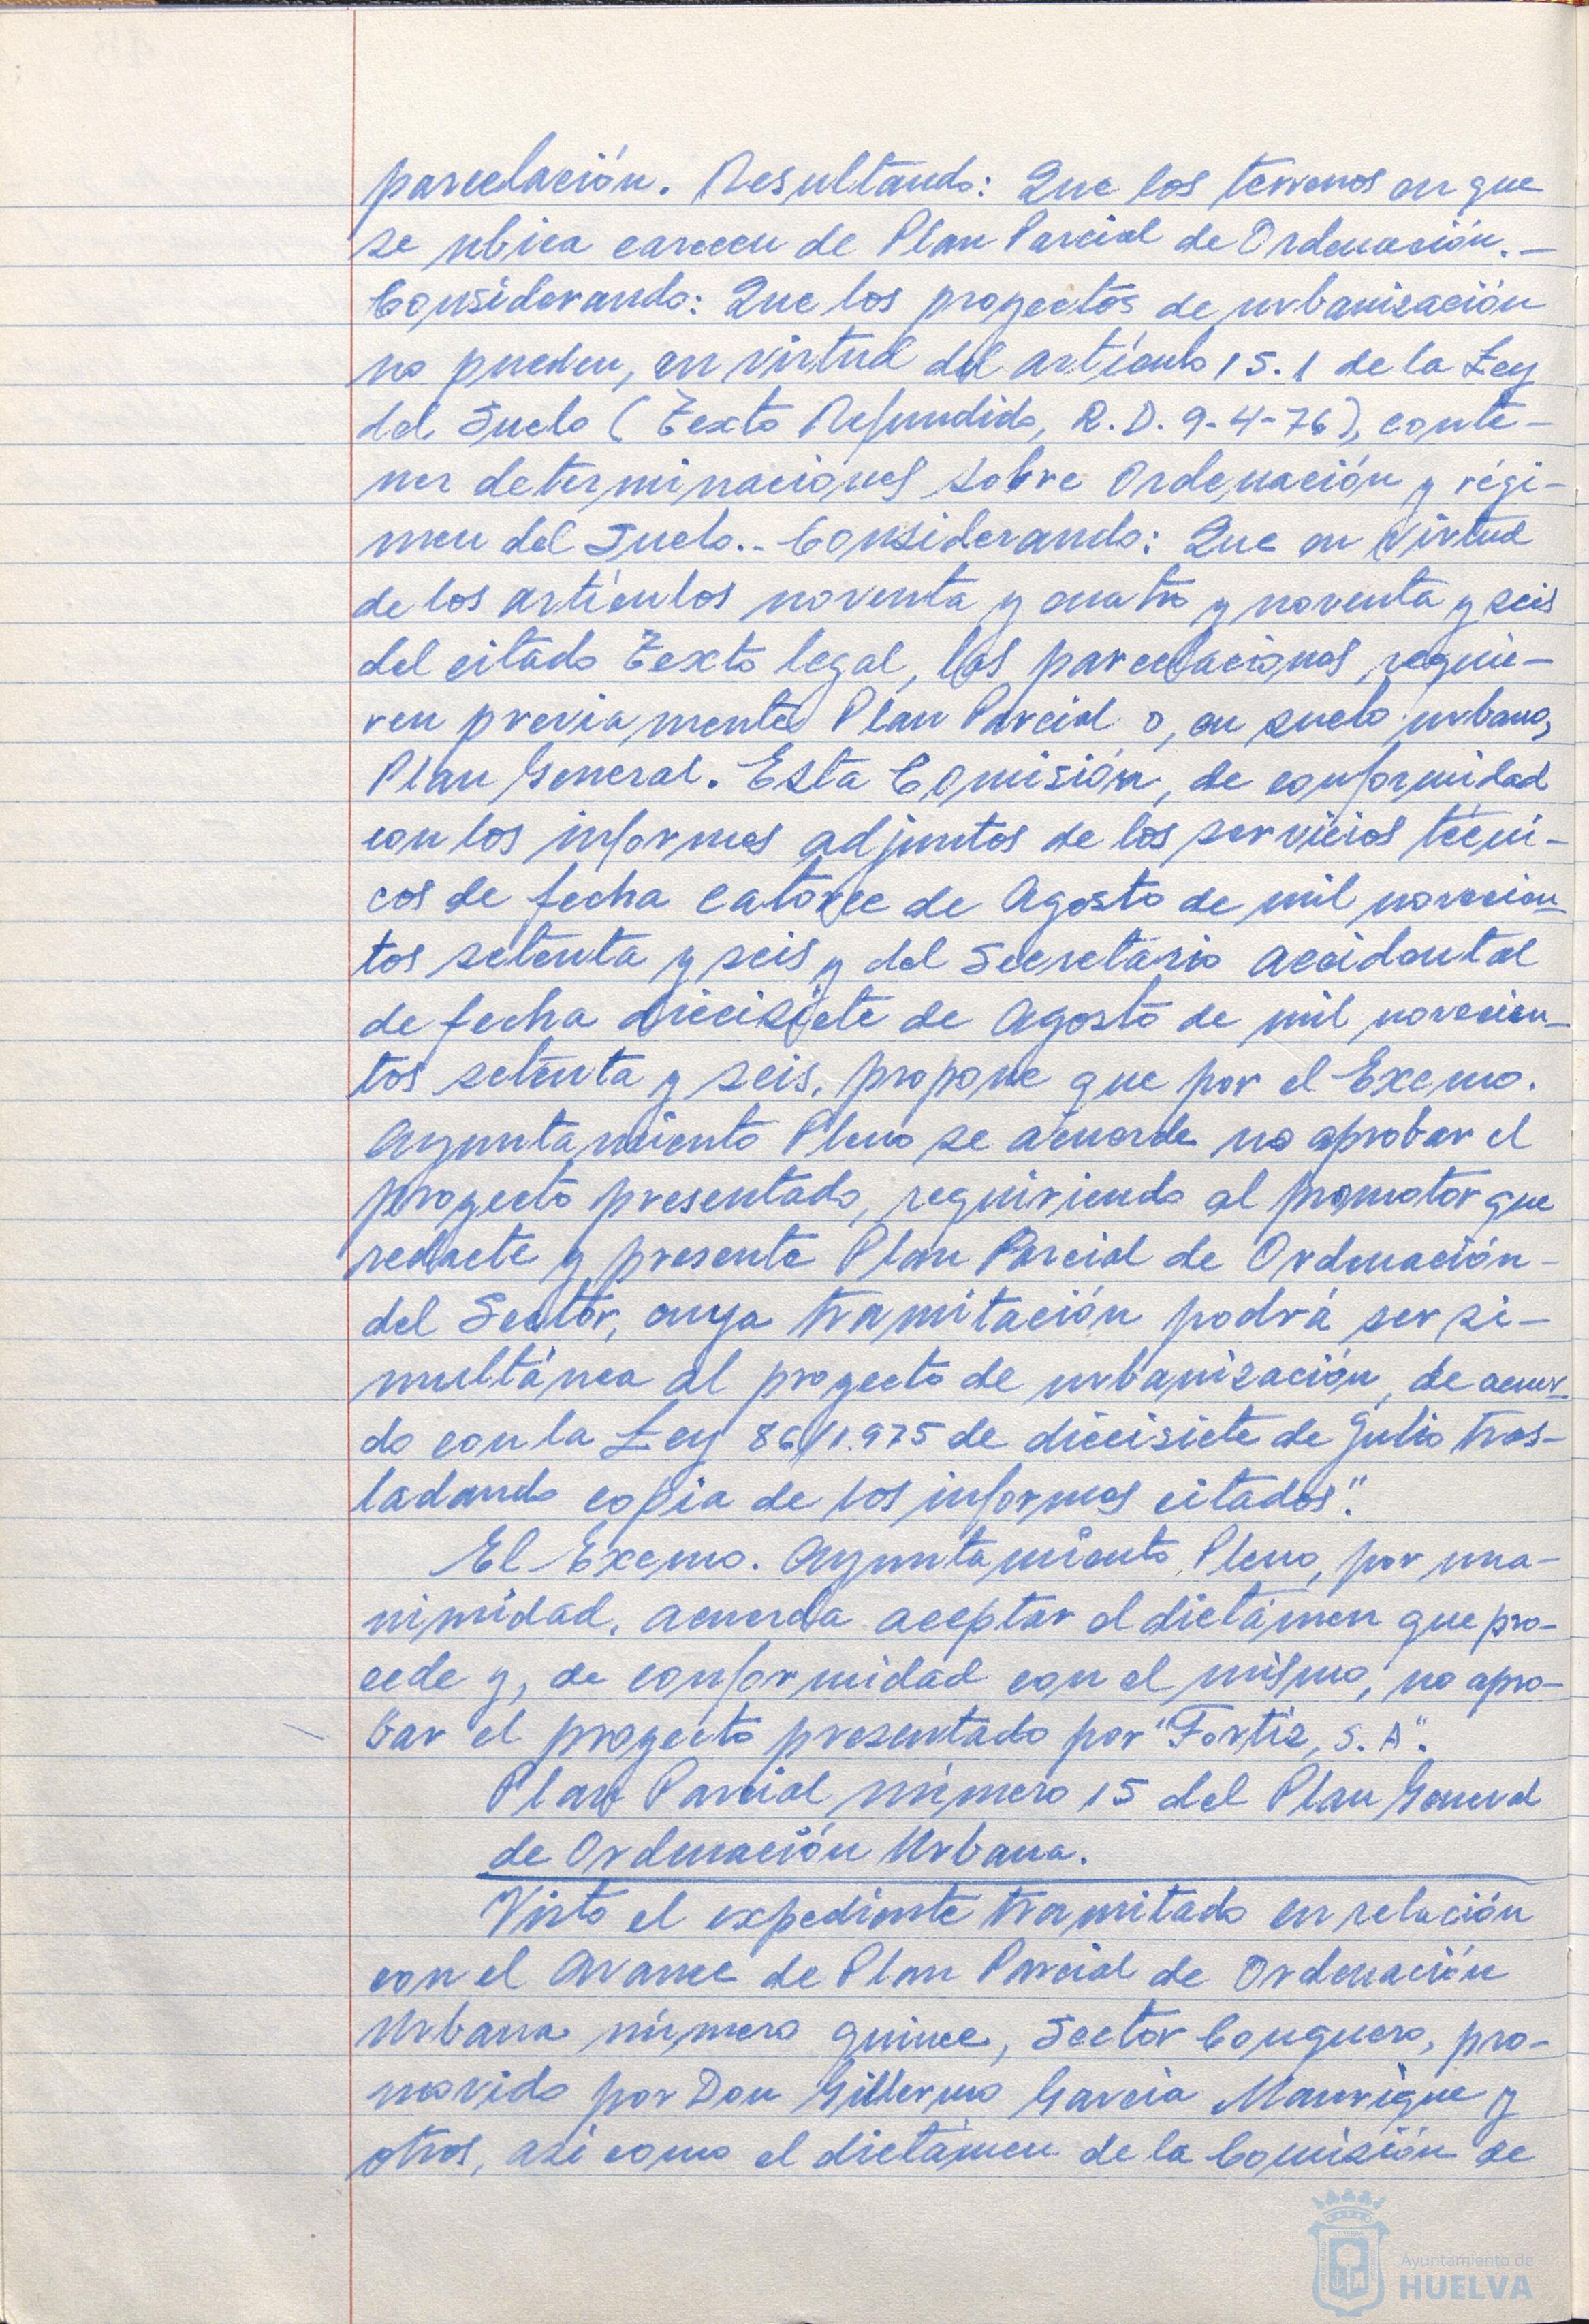 parcelación. Resultando: Que los terrenos en que
se ubica carecen de Plan Parcial de Ordenación.-
Considerando: Que los proyectos de urbanización
no pueden, en virtud del artículo 15.1 de la Ley
del Suelo (Texto Refundido, R.D. 9-4-76), conte-
ner determinaciones sobre Ordenación y régi-
men del Suelo.- Considerando: Que en virtud
de los artículos noventa y cuatro y noventa y seis
del citado Texto legal, las parcelaciones requie-
ren previamente Plan Parcial o, en suelo urbano,
Plan General. Esta Comisión, de conformidad
con los informes adjuntos de los servicios técni-
cos de fecha catorce de Agosto de mil novecien-
tos setenta y seis y del Secretario accidental
de fecha diecisiete de Agosto de mil novecien-
tos setenta y seis, propone que por el Excmo.
Ayuntamiento Pleno se acuerde no aprobar el
proyecto presentado, requiriendo al promotor que
redacte y presente Plan Parcial de Ordenación-
del Sector, cuya tramitación podrá ser si-
multánea al proyecto de urbanización, de acuer-
do con la Ley 86/1.975 de diecisiete de Julio tras-
ladando copia de los informes citados".
El Excmo. Ayuntamiento Pleno, por una-
nimidad, acuerda aceptar el dictámen que pro-
cede y, de conformidad con el mismo, no apro-
bar el proyecto presentado por "Fortiz, S.A".
Plan Parcial número 15 del Plan General
de Ordenación Urbana.
Visto el expediente tramitado en relación
con el Avance de Plan Parcial de Ordenación
Urbana número quince, Sector Conquero, pro-
movido por Don Gillermo Garcia Manrique y
otros, asi como el dictámen de la Comisión de
Ayuntamiento de
HUELVA